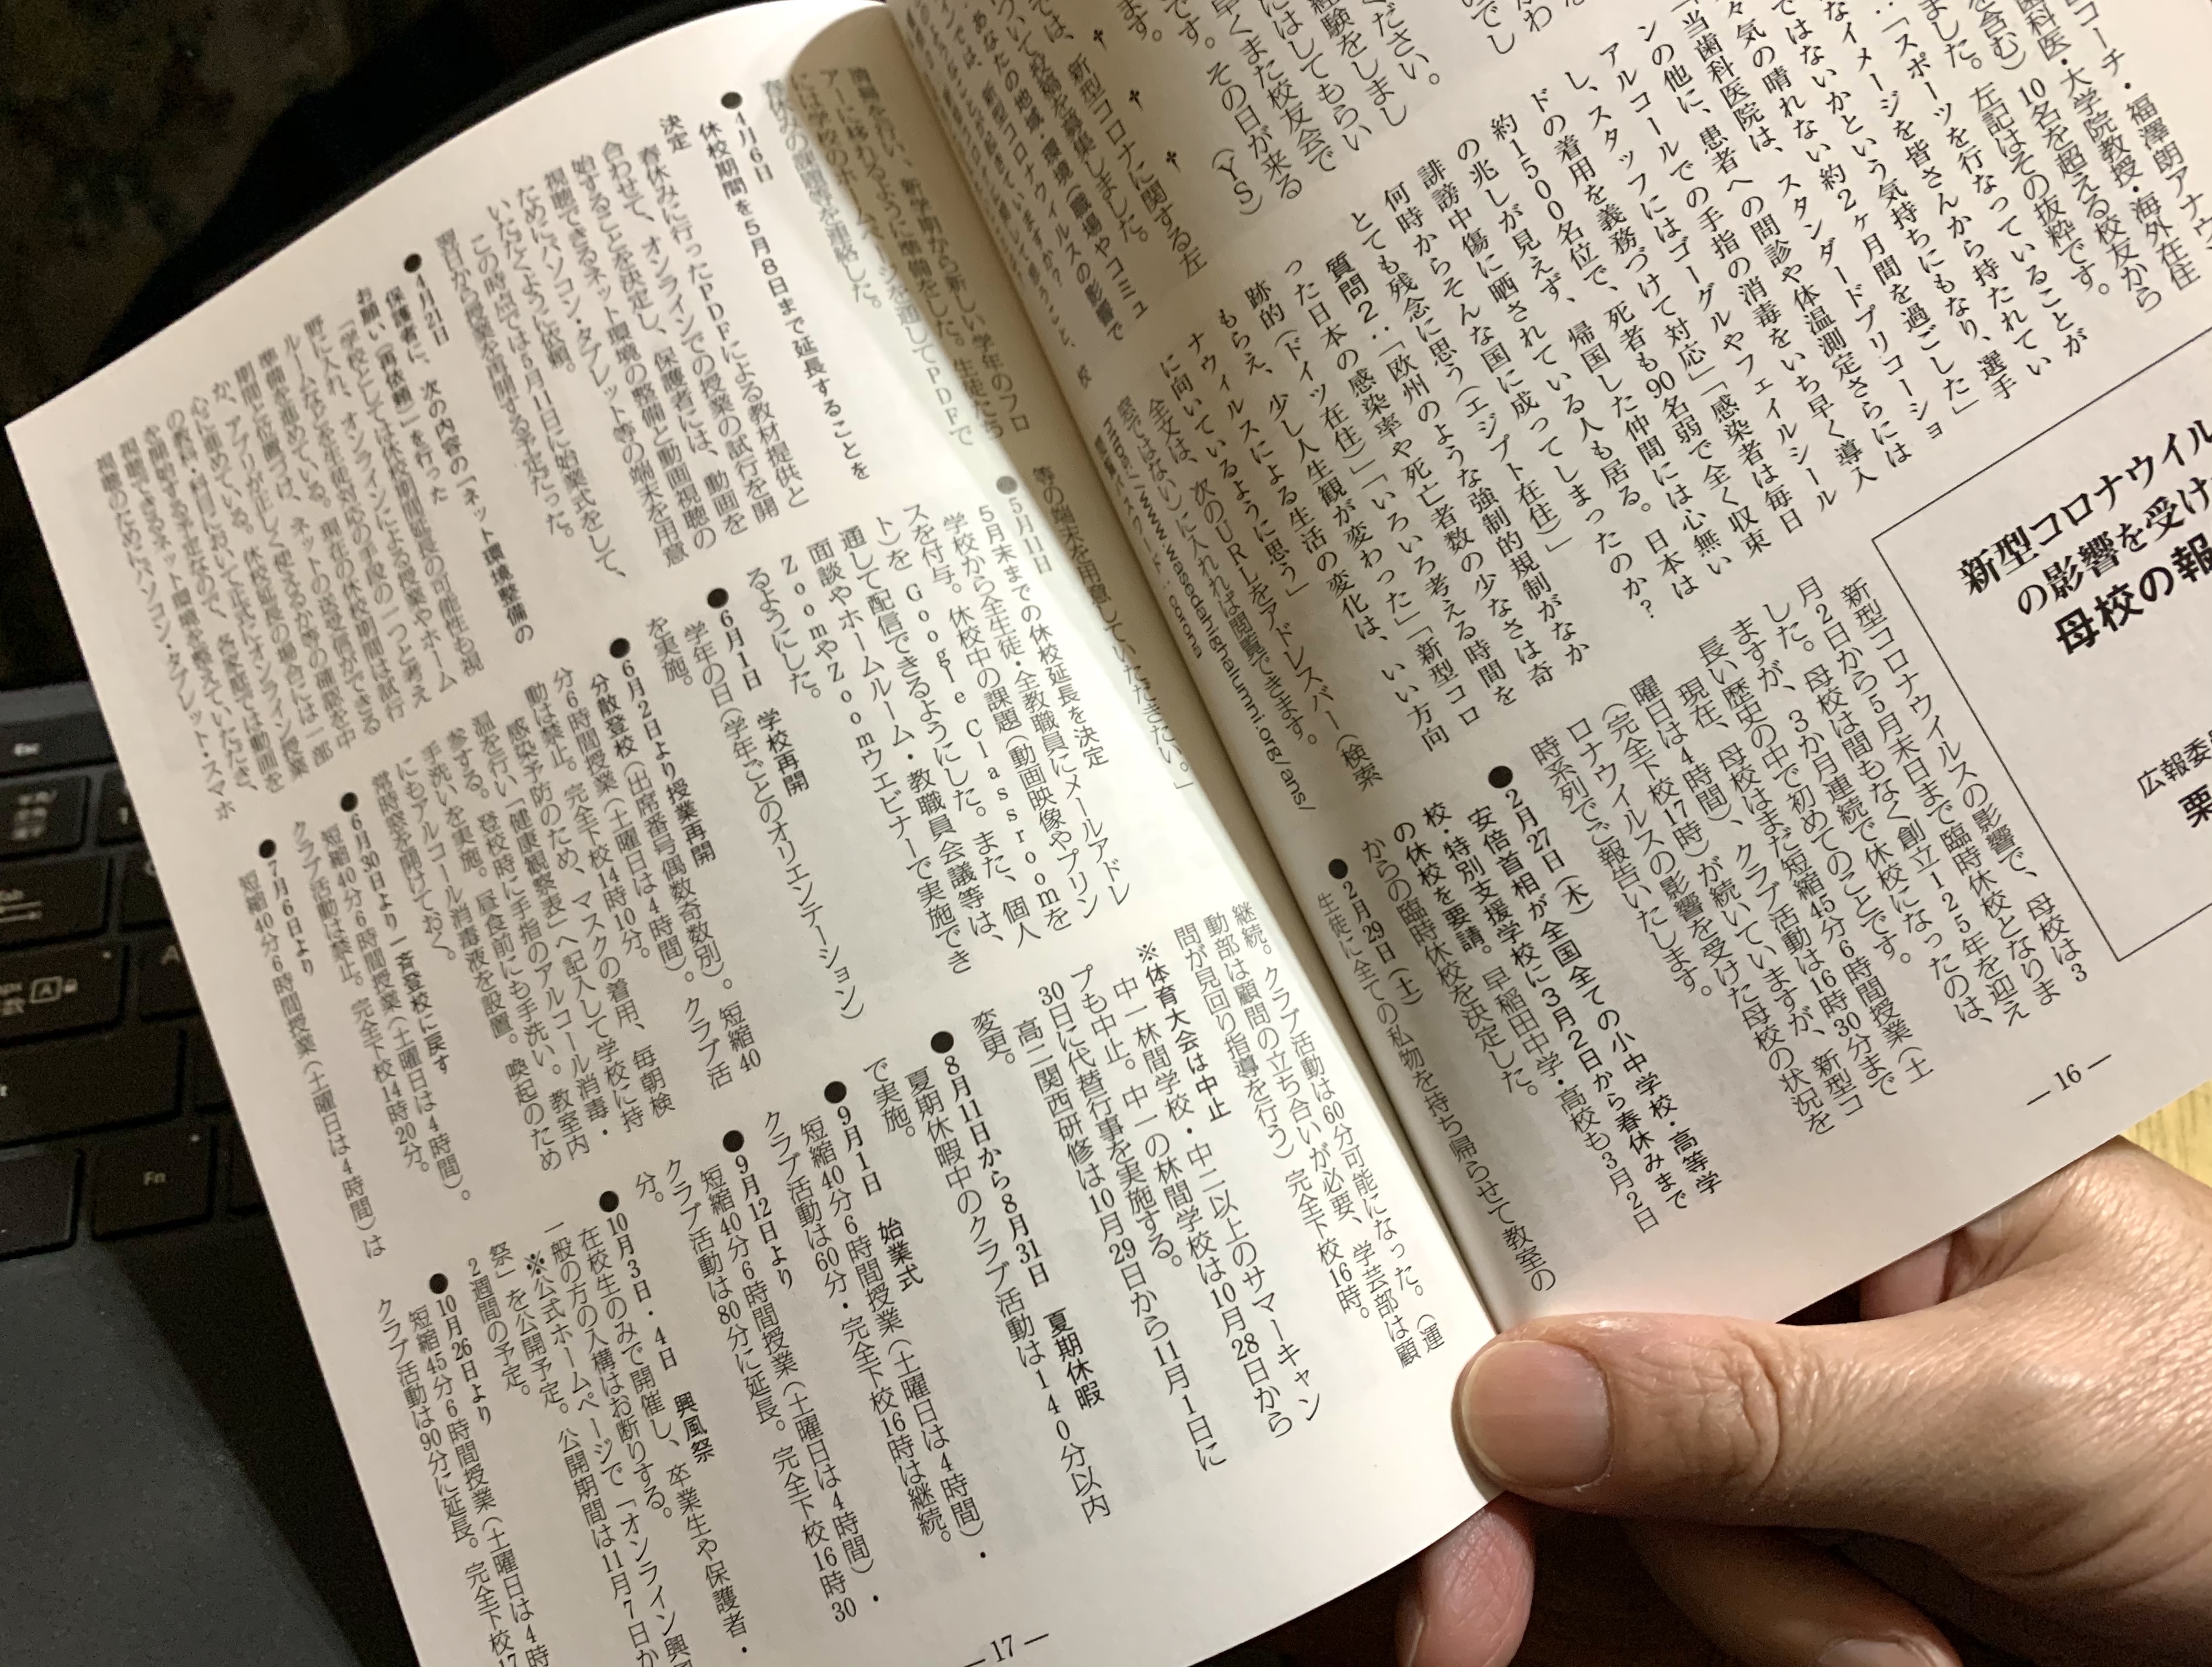 コーチ・福澤朗アナウ
歯科医・大学院教授・海外在住
を含む）10名を超える校友から
ました。左記はその抜粋です。
：「スポーツを行なっていることが
なイメージを皆さんから持たれてい
ではないかという気持ちにもなり、選手
々気の晴れない約2ヶ月間を過ごした」
「当歯科医院は、スタンダードプリコーショ
ンの他に、患者への問診や体温測定さらには
アルコールでの手指の消毒をいち早く導入
し、スタッフにはゴーグルやフェイルシール
ドの着用を義務づけて対応」「感染者は毎日
約1500名位で、死者も90名弱で全く収束
の兆しが見えず、帰国した仲間には心無い
誹謗中傷に晒されている人も居る。日本は
何時からそんな国に成ってしまったのか？
とても残念に思う（エジプト在住）」
質問2：「欧州のような強制的規制がなか
った日本の感染率や死亡者数の少なさは奇
跡的（ドイツ在住）」「いろいろ考える時間を
もらえ、少し人生観が変わった」「新型コロ
ナウィルスによる生活の変化は、いい方向
に向いているように思う」
全文は、次のURLをアドレスバー（検索
窓ではない）に入れれば閲覧できます。
ください。
経験をしまし
にはしてもらい
早くまた校友会で
です。その日が来る
ます。
（YS）
† † †
新型コロナウイル
の影響を受け
母校の報
広報委
栗
新型コロナウイルスの影響で、母校は3
月2日から5月末日まで臨時休校となりま
した。母校は間もなく創立125年を迎え
ますが、3か月連続で休校になったのは、
長い歴史の中で初めてのことです。
現在、母校はまだ短縮45分6時間授業（土
曜日は4時間）、クラブ活動は16時30分まで
（完全下校17時）が続いていますが、新型コ
ロナウイルスの影響を受けた母校の状況を
時系列でご報告いたします。
●2月27日（木）
安倍首相が全国全ての小中学校・高等学
校・特別支援学校に3月2日から春休みまで
の休校を要請。早稲田中学・高校も3月2日
からの臨時休校を決定した。
●2月29日（土）
生徒に全ての私物を持ち帰らせて教室の
―16―
清掃を行い、新学期から新しい学年のフロ
アーに移れるように準備をした。生徒たち
には学校のホームページを通してPDFで
春休みの課題等を連絡した。
●4月6日
休校期間を5月8日まで延長することを
決定
春休みに行ったPDFによる教材提供と
合わせて、オンラインでの授業の試行を開
始することを決定し、保護者には、動画を
視聴できるネット環境の整備と動画視聴の
ためにパソコン・タブレット等の端末を用意
いただくように依頼。
この時点では5月11日に始業式をして、
翌日から授業を再開する予定だった。
●4月21日
保護者に、次の内容の「ネット環境整備の
お願い（再依頼）」を行った
「学校としては休校期間延長の可能性も視
野に入れ、オンラインによる授業やホーム
ルームなどを生徒対応の手段の一つと考え
準備を進めている。現在の休校期間は試行
期間と位置づけ、ネットの送受信ができる
か、アプリが正しく使えるか等の確認を中
心に進めている。休校延長の場合には一部
の教科・科目において正式にオンライン授業
を開始する予定なので、各家庭では動画を
視聴できるネット環境を整えていただき、
視聴のためにパソコン・タブレット・スマホ
等の端末を用意していただきたい。」
●5月11日
5月末までの休校延長を決定
学校から全生徒・全教職員にメールアドレ
スを付与。休校中の課題（動画映像やプリン
ト）をGoogle Classroomを
通して配信できるようにした。また、個人
面談やホームルーム・教職員会議等は、
ZoomやZoomウェビナーで実施でき
るようにした。
●6月1日　学校再開
学年の日（学年ごとのオリエンテーション）
を実施。
●6月2日より授業再開
分散登校（出席番号偶数奇数別）。短縮40
分6時間授業（土曜日は4時間）。クラブ活
動は禁止。完全下校14時10分。
感染予防のため、マスクの着用、毎朝検
温を行い「健康観察表」へ記入して学校に持
参する。登校時に手指のアルコール消毒・
手洗いを実施。昼食前にも手洗い。教室内
にもアルコール消毒液を設置。喚起のため
常時窓を開けておく。
●6月30日より一斉登校に戻す
短縮40分6時間授業（土曜日は4時間）。
クラブ活動は禁止。完全下校14時20分。
●7月6日より
短縮40分6時間授業（土曜日は4時間）は
継続。クラブ活動は60分可能になった。（運
動部は顧問の立ち合いが必要、学芸部は顧
問が見回り指導を行う）完全下校16時。
※体育大会は中止
中一林間学校・中二以上のサマーキャン
プも中止。中一の林間学校は10月28日から
30日に代替行事を実施する。
高二関西研修は10月29日から11月1日に
変更。
●8月11日から8月31日　夏期休暇
夏期休暇中のクラブ活動は140分以内
で実施。
●9月1日　始業式
短縮40分6時間授業（土曜日は4時間）・
クラブ活動は60分・完全下校16時は継続。
●9月12日より
短縮40分6時間授業（土曜日は4時間）・
クラブ活動は80分に延長。完全下校16時30
分。
●10月3日・4日　興風祭
在校生のみで開催し、卒業生や保護者・
一般の方の入構はお断りする。
※公式ホームページで「オンライン興風
祭」を公開予定。公開期間は11月7日か
2週間の予定。
●10月26日より
短縮45分6時間授業（土曜日は4時
クラブ活動は90分に延長。完全下校17
―17―